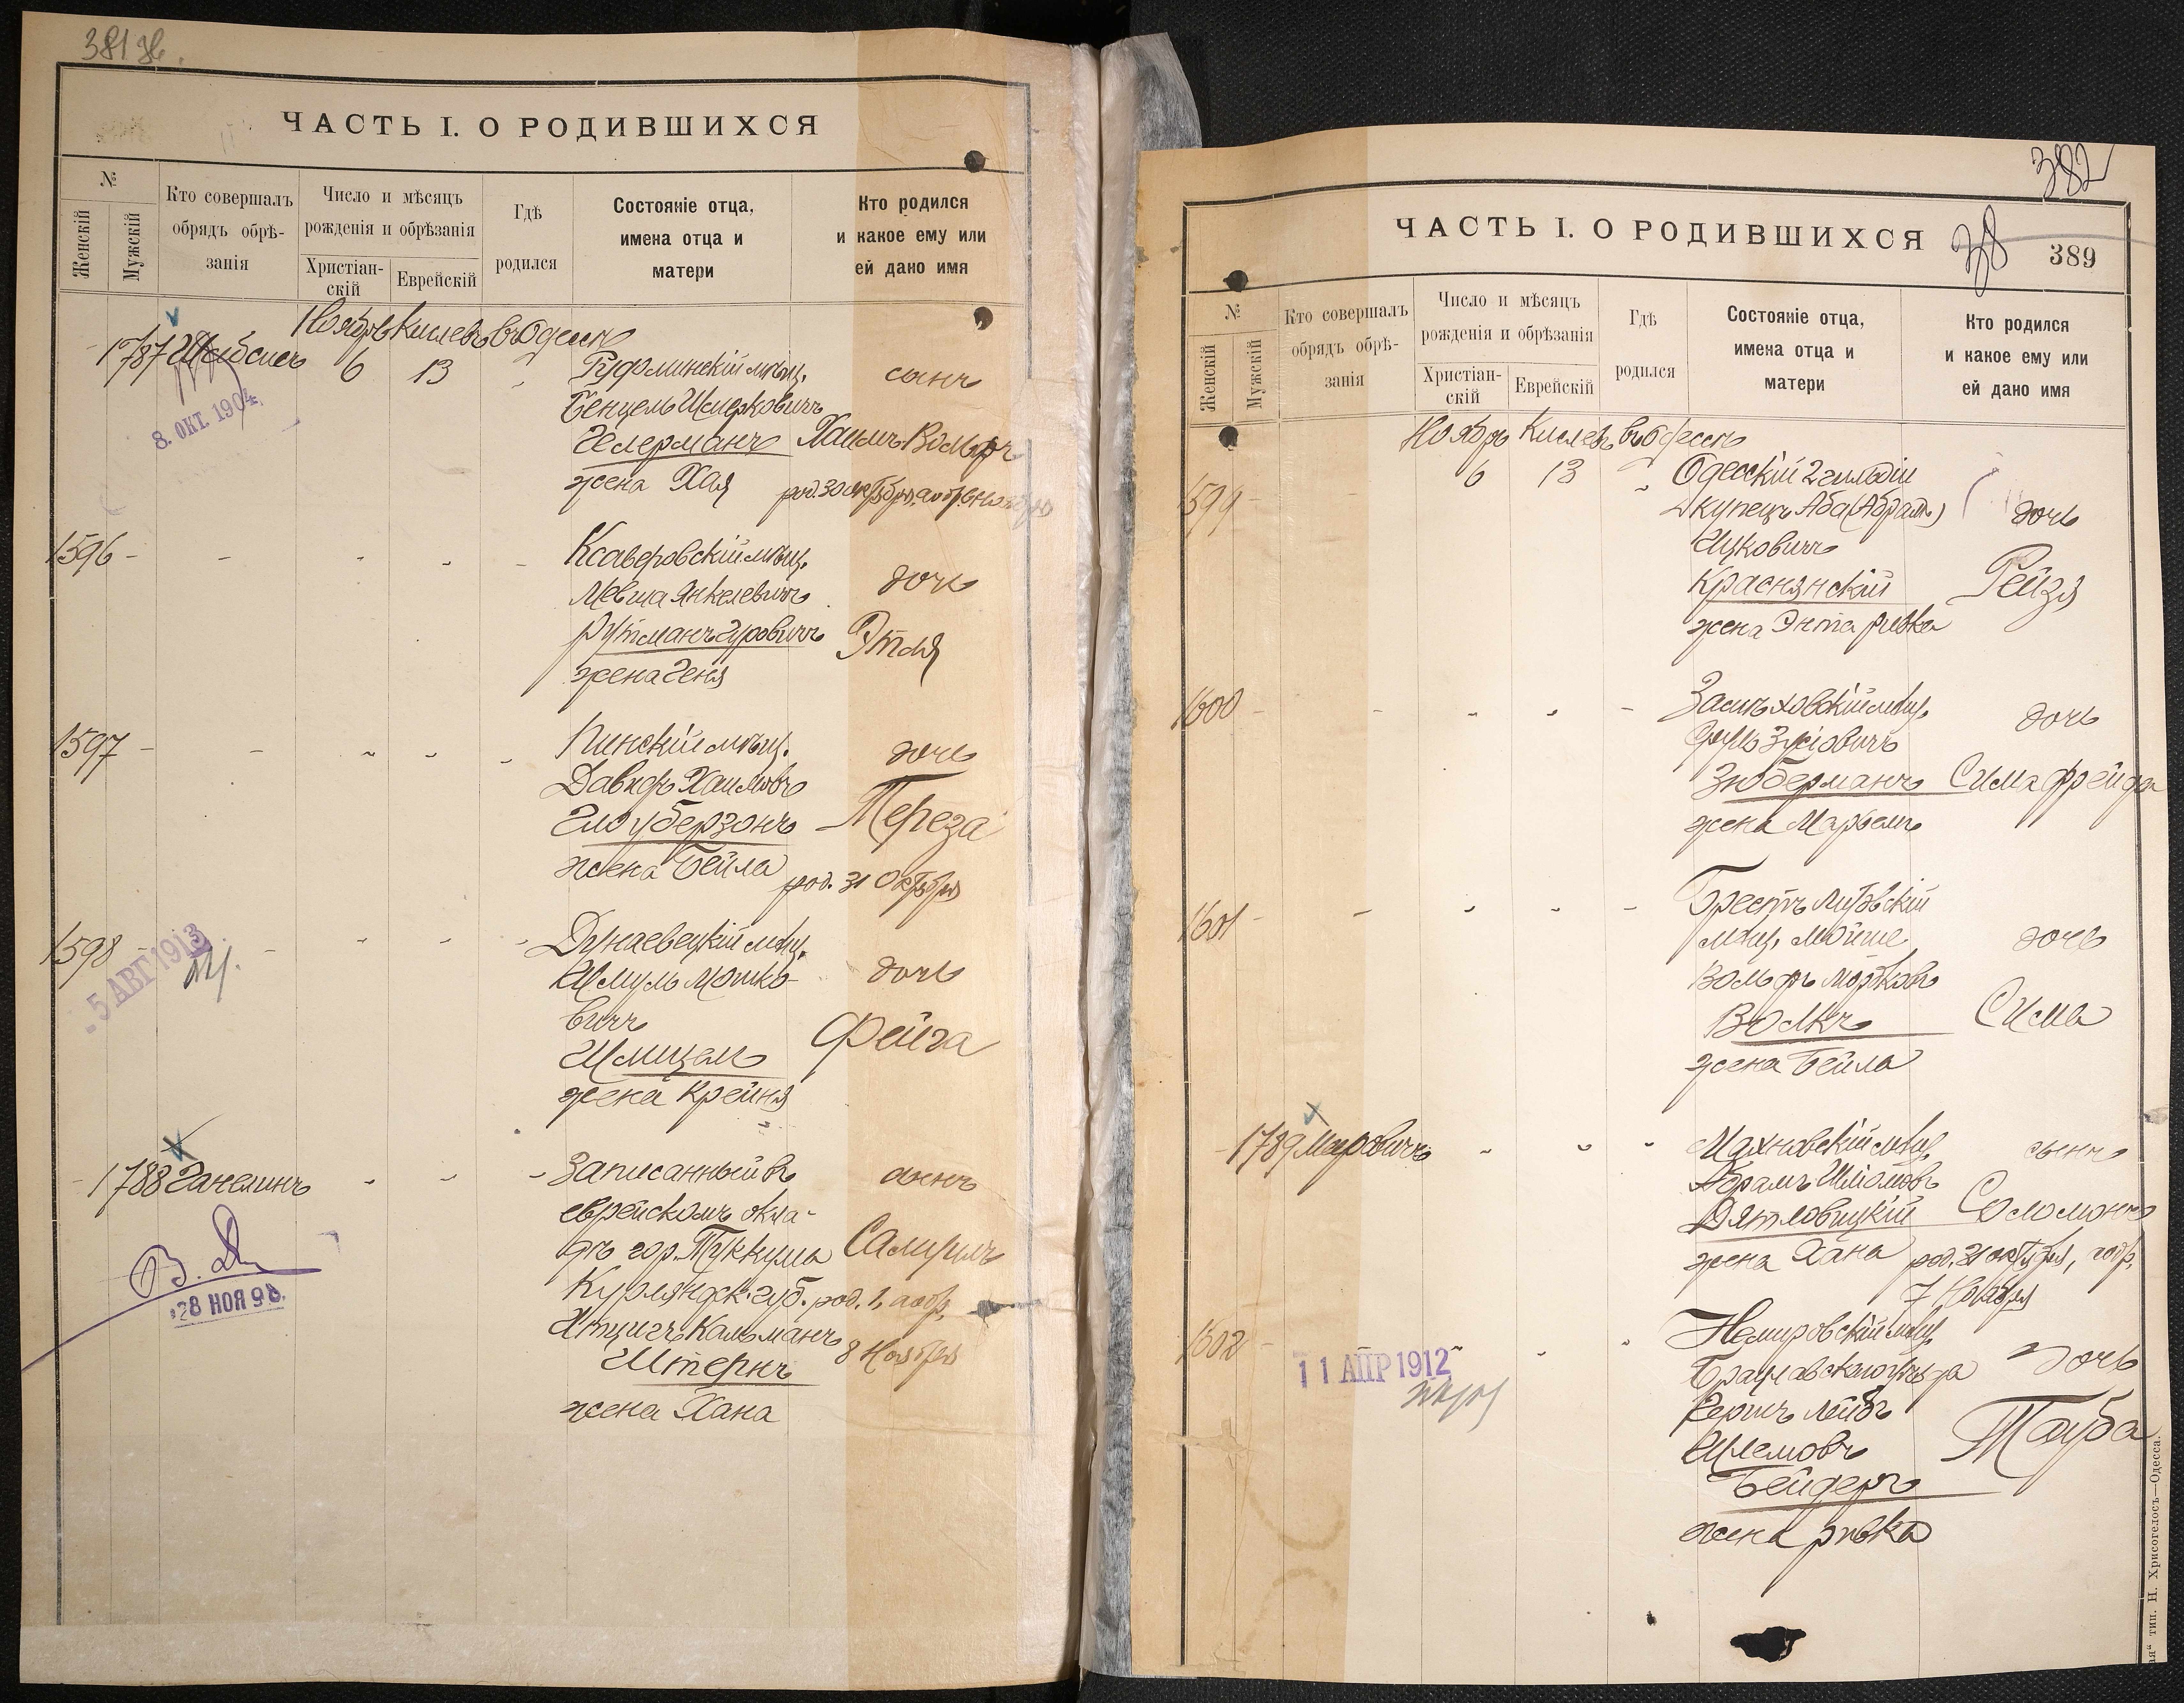 381 об.
ЧАСТЬ I. О РОДИВШИХСЯ
№
Женскій
Мужскій
Кто совершалъ обрядъ обрѣ-
занія
Число и мѣсяцъ
рожденія и обрѣзанія
Христіан-
скій
Еврейскій
Гдѣ
родился
Состояніе отца,
имена отца и
матери
Кто родился
и какое ему или
ей дано имя
Ноябрь Кислевъ въ Одессѣ
1787
6 13
мѣщ.
сынъ
8. ОКТ. 1904
Хаимъ Вольфъ
жена Хая
род. 30 октября, а обр. 6 ноября
1596 -
Ксаверовскій мѣщ.
дочь
Мевша Янкелевичъ
Рутманъ Гуровичъ
Этля
жена Геня
1597 -
Пинскій мѣщ.
дочь
Давидъ Хаимовъ
Переза
жена Бейла
род. 31 октября
1598 -
Дунаевецкій мѣщ.
дочь
Шмуль Мошко-
вичъ
Фейга
Шмицель
жена Крейня
5 АВГ 1913
1788 Ганелинъ
Записанный въ
сынъ
еврейскомъ окла-
дѣ гор. Туккума
Самуилъ
Курляндск. губ.
род. 1, а обр.
8 Ноября
Итцигъ Кальманъ
Штернъ
жена Хана
28 НОЯ 98.
382
ЧАСТЬ I. О РОДИВШИХСЯ
389
№
Женскій
Мужскій
Кто совершалъ
обрядъ обрѣ-
занія
Число и мѣсяцъ
рожденія и обрѣзанія
Христіан-
скій
Еврейскій
Гдѣ
родился
Состояніе отца,
имена отца и
матери
Кто родился
и какое ему или
ей дано имя
Ноябрь Кислевъ въ Одессѣ
1599
6 13
Одесскій 2 гильдіи
купецъ Аба (Абрамъ)
дочь
Ицковичъ
Краснянскій
Рейзя
жена Энта Ривка
1600
мѣщ.
дочь
Зусіовичъ
Зюберманъ
Сима Фрейда
жена Марьемъ
1601
Брестъ Литовскій
мѣщ. Мойше
дочь
Вольфъ Мортковъ
Волкъ
Сима
жена Бейла
1789 Меровичъ
Махновскій мѣщ.
сынъ
Абрамъ Шліомовъ
Дятловицкій
Соломонъ
жена Хана
род. 31 октября, а обр.
7 Ноября
1602
Немировскій мѣщ.
Брацлавскаго уѣзда
дочь
Гершъ Лейбъ
Шлемовъ
Тауба
Бейдеръ
жена Ривка
11 АПР 1912
тип. Н. Хрисогелосъ—Одесса.